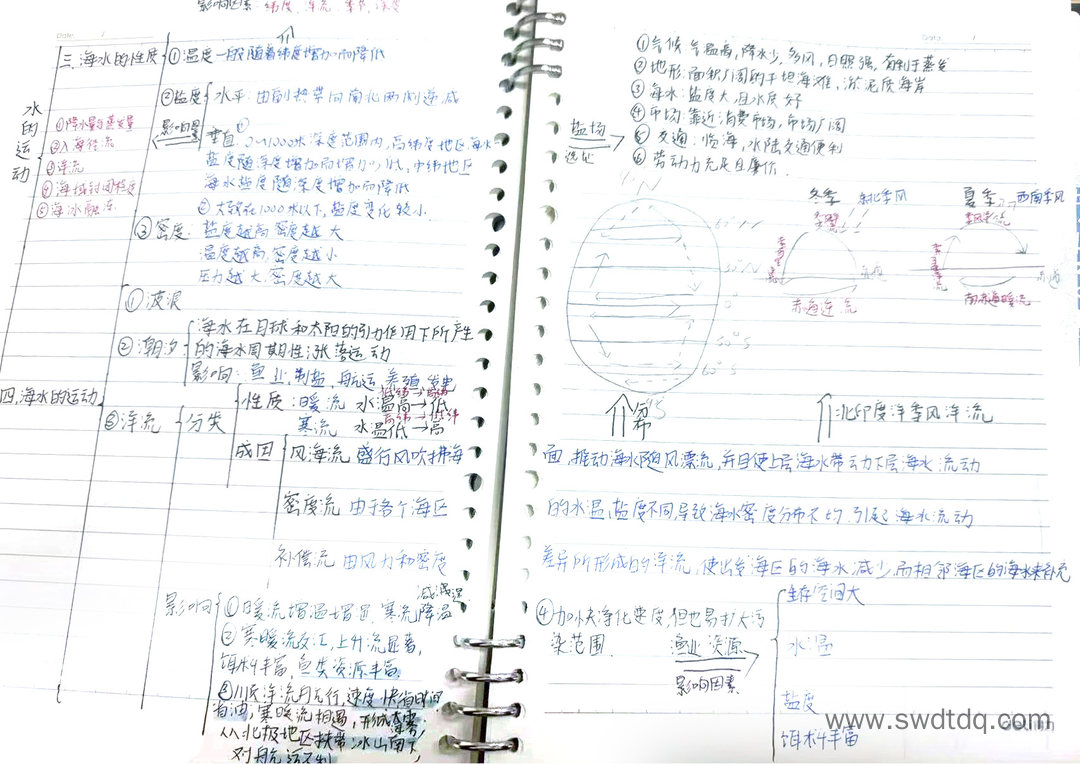 影响因素：纬度、洋流、季节、深度
水的运动
三.海水的性质
①温度一般随着纬度增加而降低
②盐度
水平：由副热带向南北两侧递减
影响因素
①降水量与蒸发量
②入海径流
③洋流
④海域封闭程度
⑤海冰融冻
垂直①0~1000米深度范围内,高纬度地区海水
盐度随深度增加而增加,中低纬地区
海水盐度随深度增加而降低
②大致在1000米以下,盐度变化较小
③密度：盐度越高密度越大
温度越高,密度越小
压力越大,密度越大
四,海水的运动
①波浪
②潮汐：
海水在月球和太阳的引力作用下所产生
的海水周期性涨落运动
影响：鱼业,制盐,航运 养殖,发电
③洋流
分类
性质：暖流 水温高→低
低纬→高纬
寒流 水温低→高
高纬→低纬
成因
风海流 盛行风吹拂海
密度流 由于各个海区
补偿流 由风力和密度
影响
①暖流增温增湿 寒流降温
减湿
②寒暖流交汇,上升流显著,
饵料丰富,鱼类资源丰富.
③顺洋流航行,速度快省时间
省油,寒暖流相遇,形成海雾,
从北极地区挟带冰山南下,
对航运不利
Date.
①气候 气温高,降水少,多风,日照强,有利于蒸发
②地形:面积广阔的平坦海滩,淤泥质海岸
③海水:盐度大,且水质好
④市场:靠近消费市场,市场广阔
⑤交通：临海,水陆交通便利
⑥劳动力充足且廉价.
盐场
选址
60°N
30°N
0°
30°S
60°S
分布
冬季 东北季风
赤道
赤道逆流
夏季 西南季风
季风洋流
赤道
南赤道暖流
北印度洋季风洋流
面,推动海水随风漂流,并且使上层海水带动下层海水流动
的水温,盐度不同,导致海水密度分布不均,引起海水流动
差异所形成的洋流,使出发海区的海水减少,而相邻海区的海水来补充
④加快净化速度,但也易扩大污
染范围.
渔业资源
影响因素
生存空间大
水温
盐度
饵料丰富
www.swdtdq.com